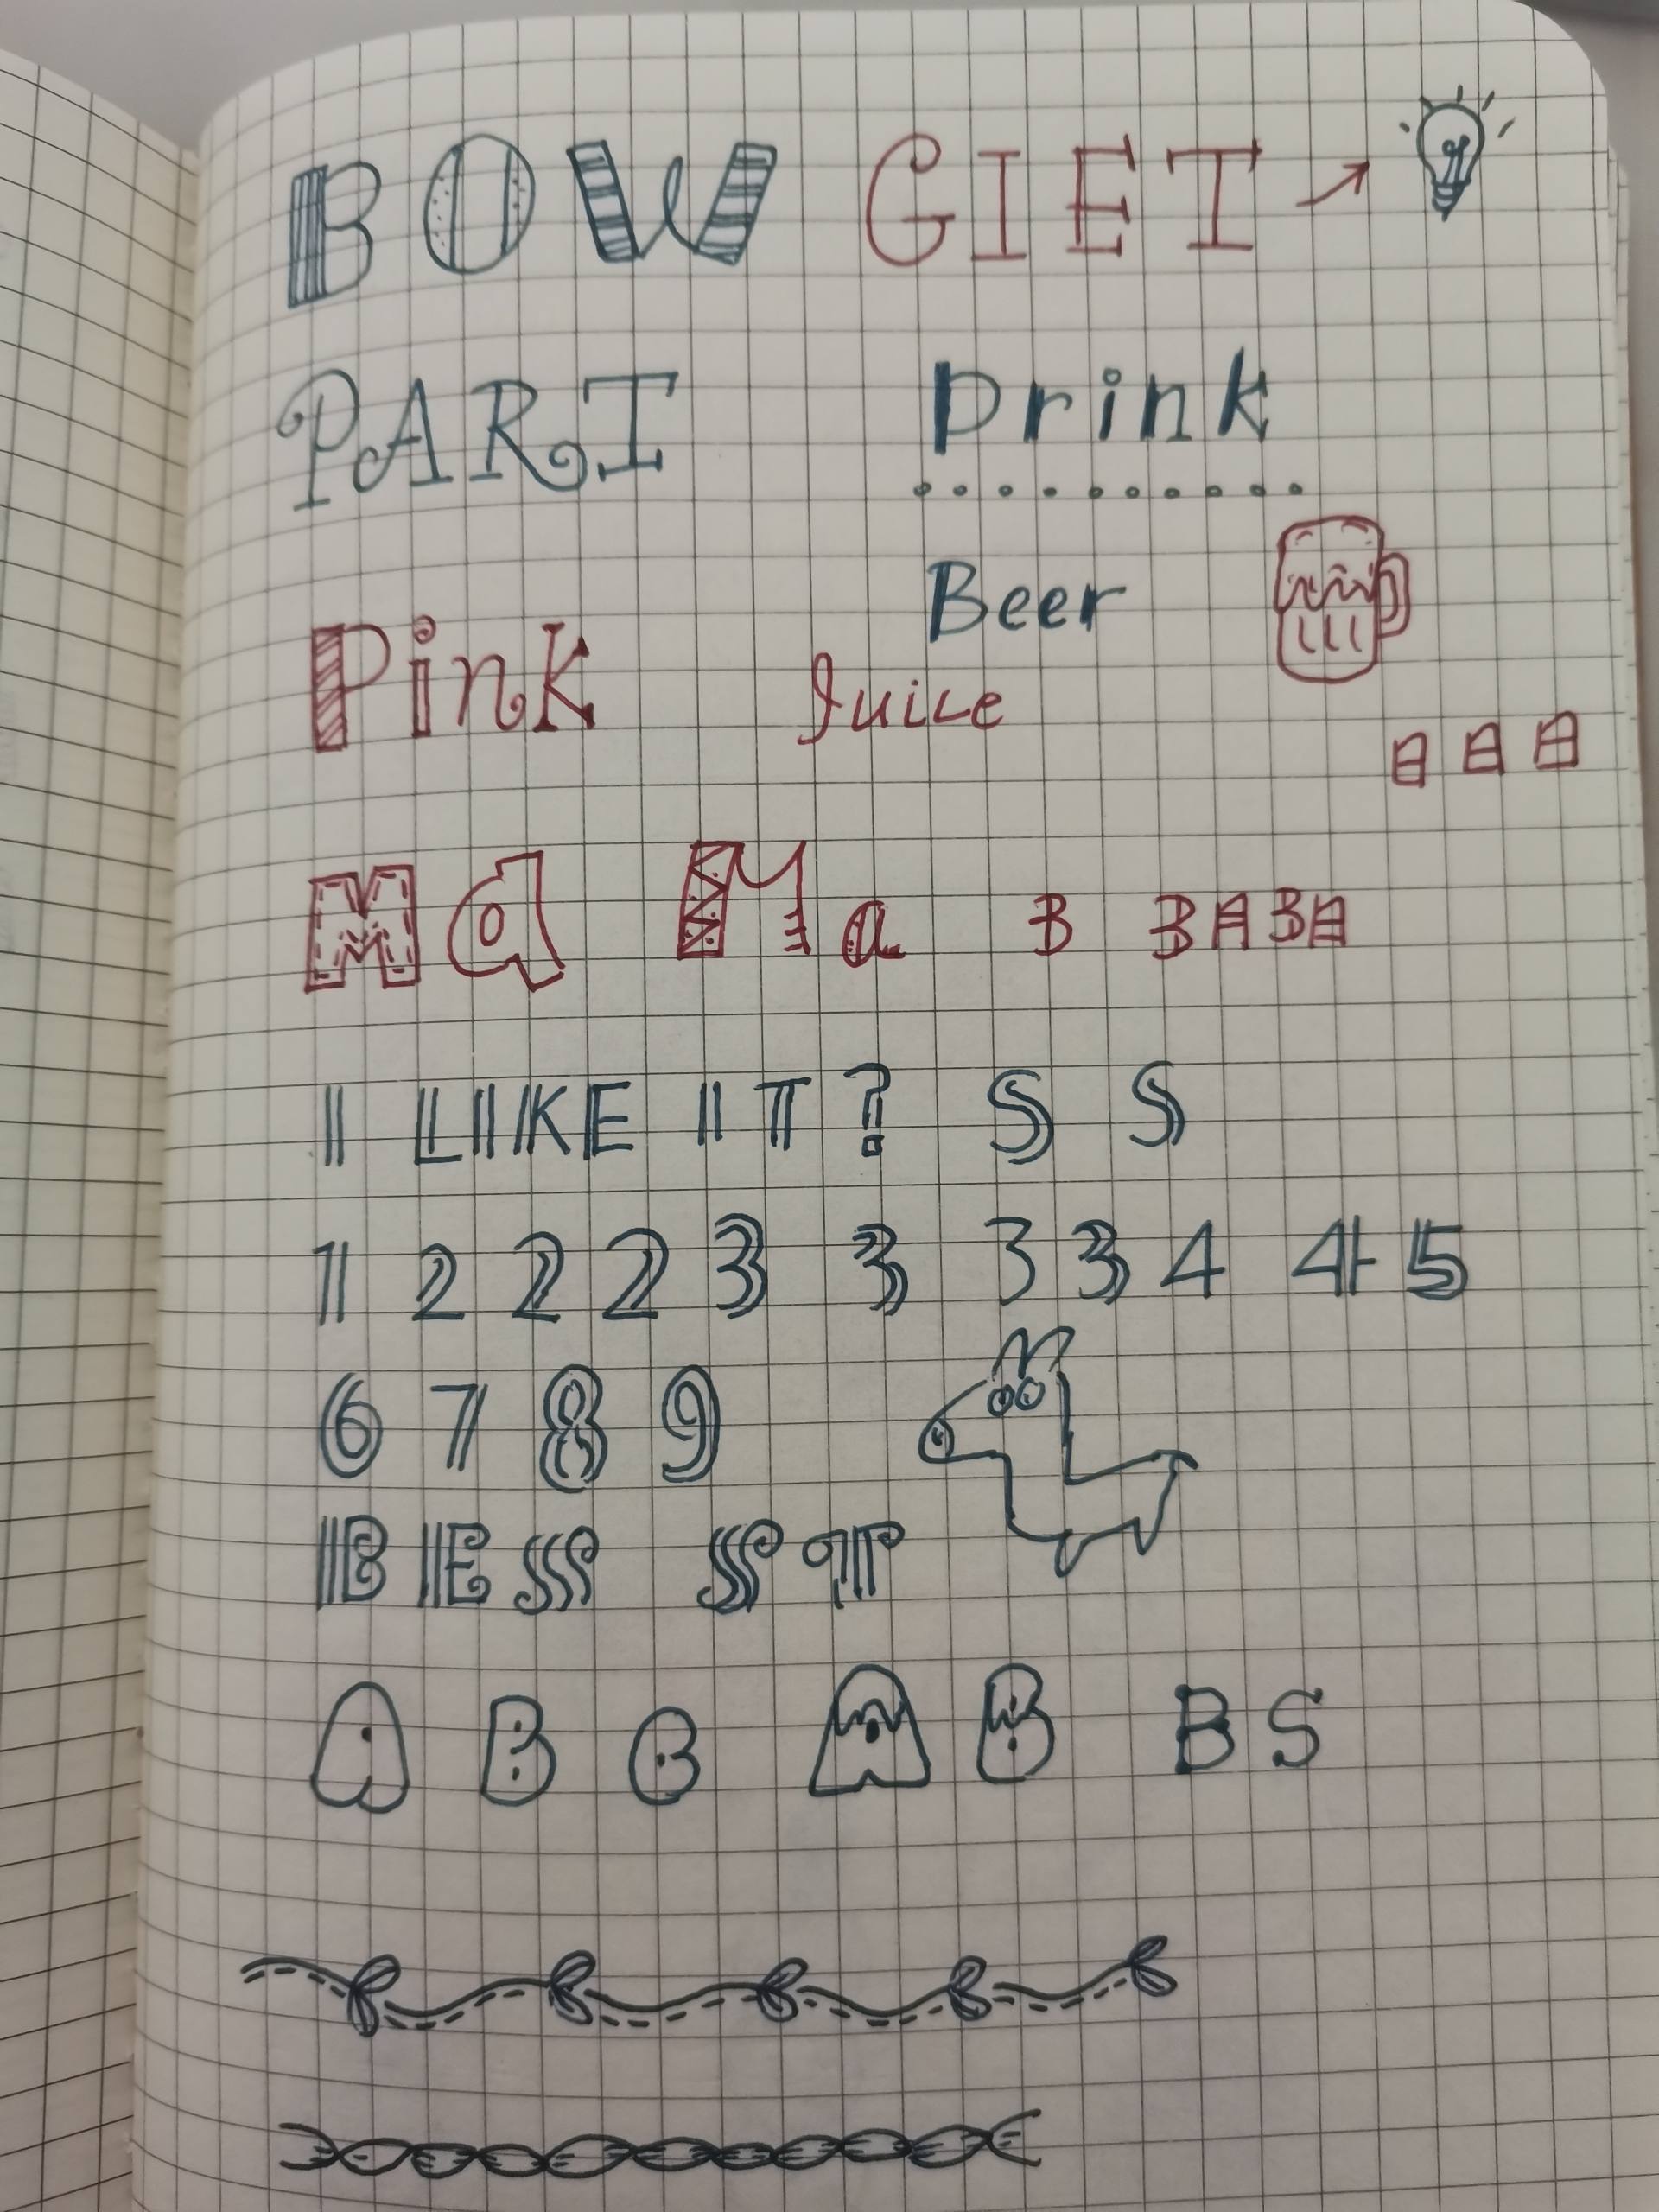 BOW GIET
PART Drink
Beer
Pink Juice
Ma Ma B BABA
I LIKE IT? S S
1 2 2 2 3 3 3 3 4 4 5
6 7 8 9
B E S S T
A B B A B B S